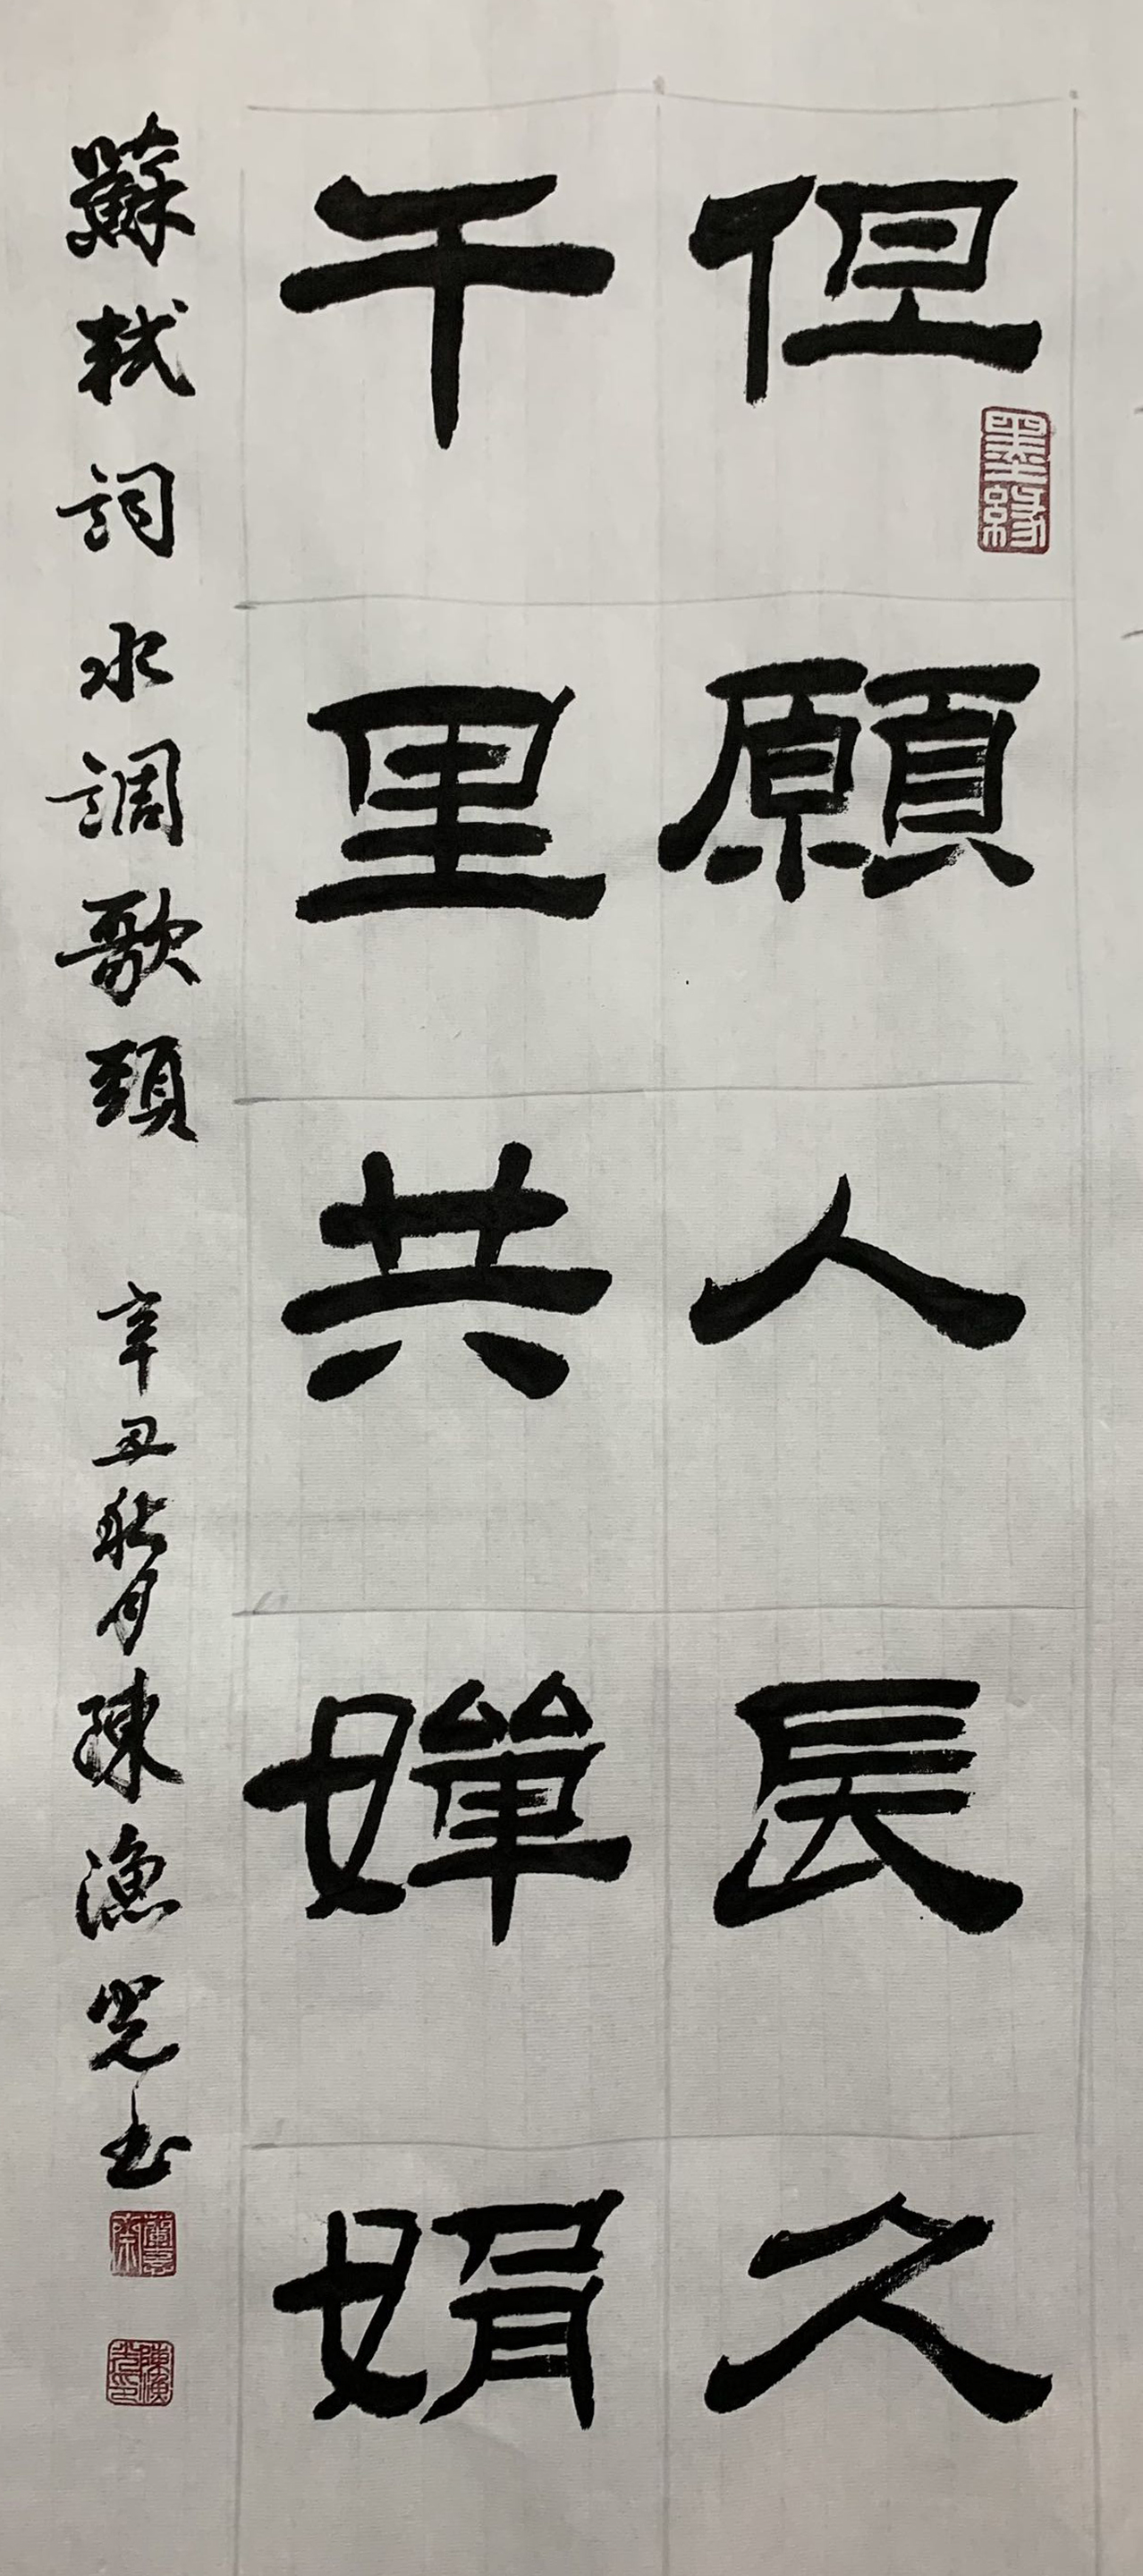 但願人長久
千里共嬋娟
蘇軾詞水調歌頭 辛丑秋月陳漁光書
墨緣
陳漁光印